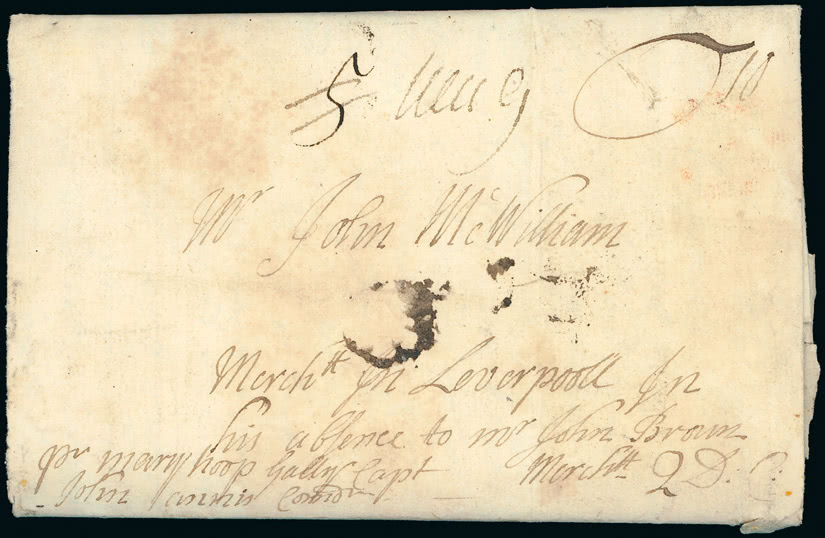 Mr John McWilliam
Merchtt In Leverpooll In
his absence to mr John Brown
Merchtt 2 D.
pr mary hoop Gally Capt
John annis Comdr